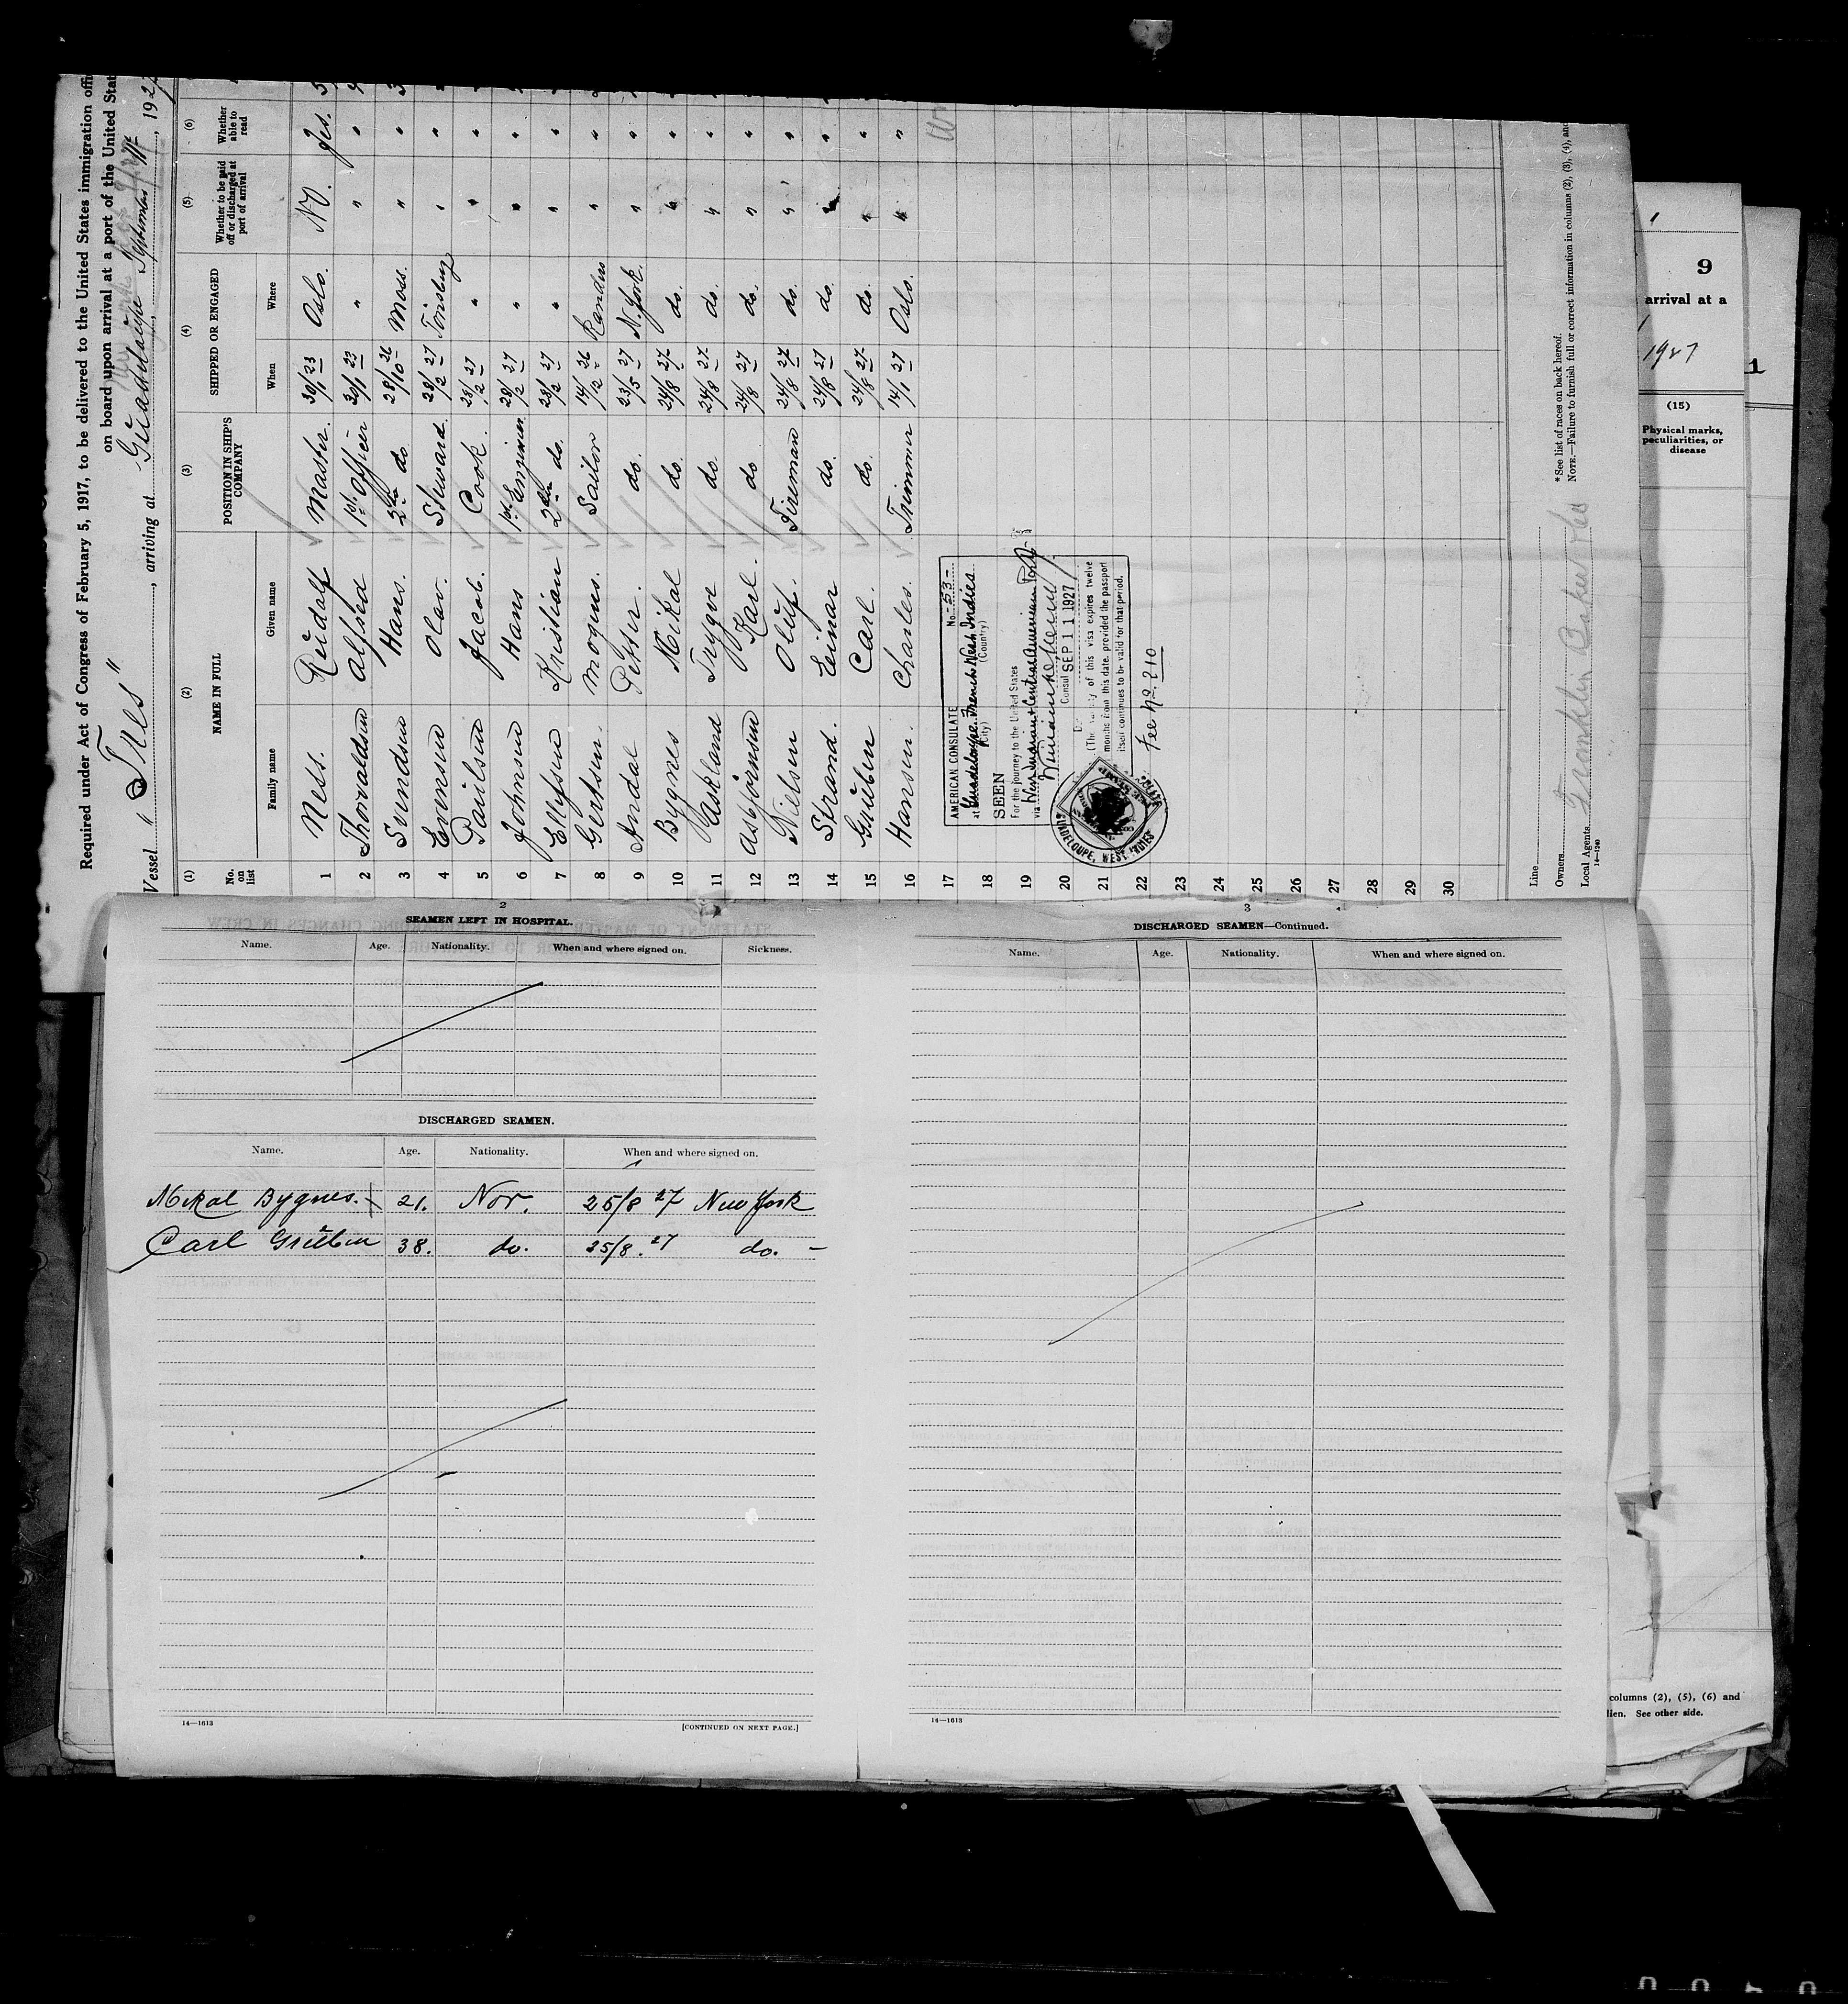 Required under Act of Congress of February 5, 1917, to be delivered to the United States immigration offi
on board upon arrival at a port of the United Stat
Vessel "Tres", arriving at Guadaloupe September, 192
(1) (2) (3) (4) (5) (6)
No. on list
NAME IN FULL
Family name Given name
POSITION IN SHIP'S COMPANY
SHIPPED OR ENGAGED
When Where
Whether to be paid off or discharged at port of arrival
Whether able to read
1 Ness. Rudolf Master. 30/1 23 Oslo. No. Yes.
2 Thorvaldsen Alfred 1st Officer 30/1 23 " " "
3 Svendsen Hans. 2nd do 28/10 26 Moss. " "
4 Evensen Olav. Steward. 28/2 27 Tönsberg " "
5 Paulsen Jacob. Cook. 28/2 27 " " "
6 Johnsen Hans 1st Enginier 28/2 27 " " "
7 Ellefsen Kristian 2nd do. 28/2 27 " " "
8 Gertsen. Mogens. Sailor 14/12 26 Randers " "
9 Andal Petter. do. 23/5 27 N.York. " "
10 Bygnes Mikal do. 24/8 27 do. " "
11 Vaskland Trygve do. 24/8 27 do. " "
12 Asbjörnsen Karl. do 24/8 27 do. " "
13 Nielsen Oluf. Fireman 24/8 27 do. " "
14 Strand. Einar do. 24/8 27 do. " "
15 Gruben Carl. do. 24/8 27 do. " "
16 Hansen. Charles. Trimmer 14/1 27 Oslo. " "
17
18
19
20
21
22
23
24
25
26
27
28
29
30
AMERICAN CONSULATE No. 53
at Guadeloupe, French West Indies
(City) (Country)
SEEN
For the journey to the United States
via West Indian & Central American Ports
Consul SEP 11 1927
(The validity of this visa expires twelve
months from this date, provided the passport
itself continues to be valid for that period.
Fee No. 210
GUADELOUPE, WEST INDIES
Line
Owners
Local Agents Franklin Baker
14—1240
* See list of races on back hereof.
NOTE.—Failure to furnish full or correct information in columns (2), (3), (4), and
9
arrival at a
1927
1
(15)
Physical marks, peculiarities, or disease
columns (2), (5), (6) and
lien. See other side.
2
SEAMEN LEFT IN HOSPITAL.
Name. Age. Nationality. When and where signed on. Sickness.
DISCHARGED SEAMEN.
Name. Age. Nationality. When and where signed on.
Mikal Bygnes. 21. Nor. 25/8 27 New York
Carl Gruben 38. do. 25/8. 27 do. —
14—1613 [CONTINUED ON NEXT PAGE.]
3
DISCHARGED SEAMEN—Continued.
Name. Age. Nationality. When and where signed on.
14—1613